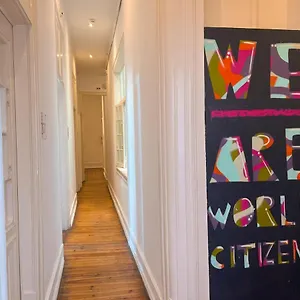 WE
ARE
WORL
CITIZEN